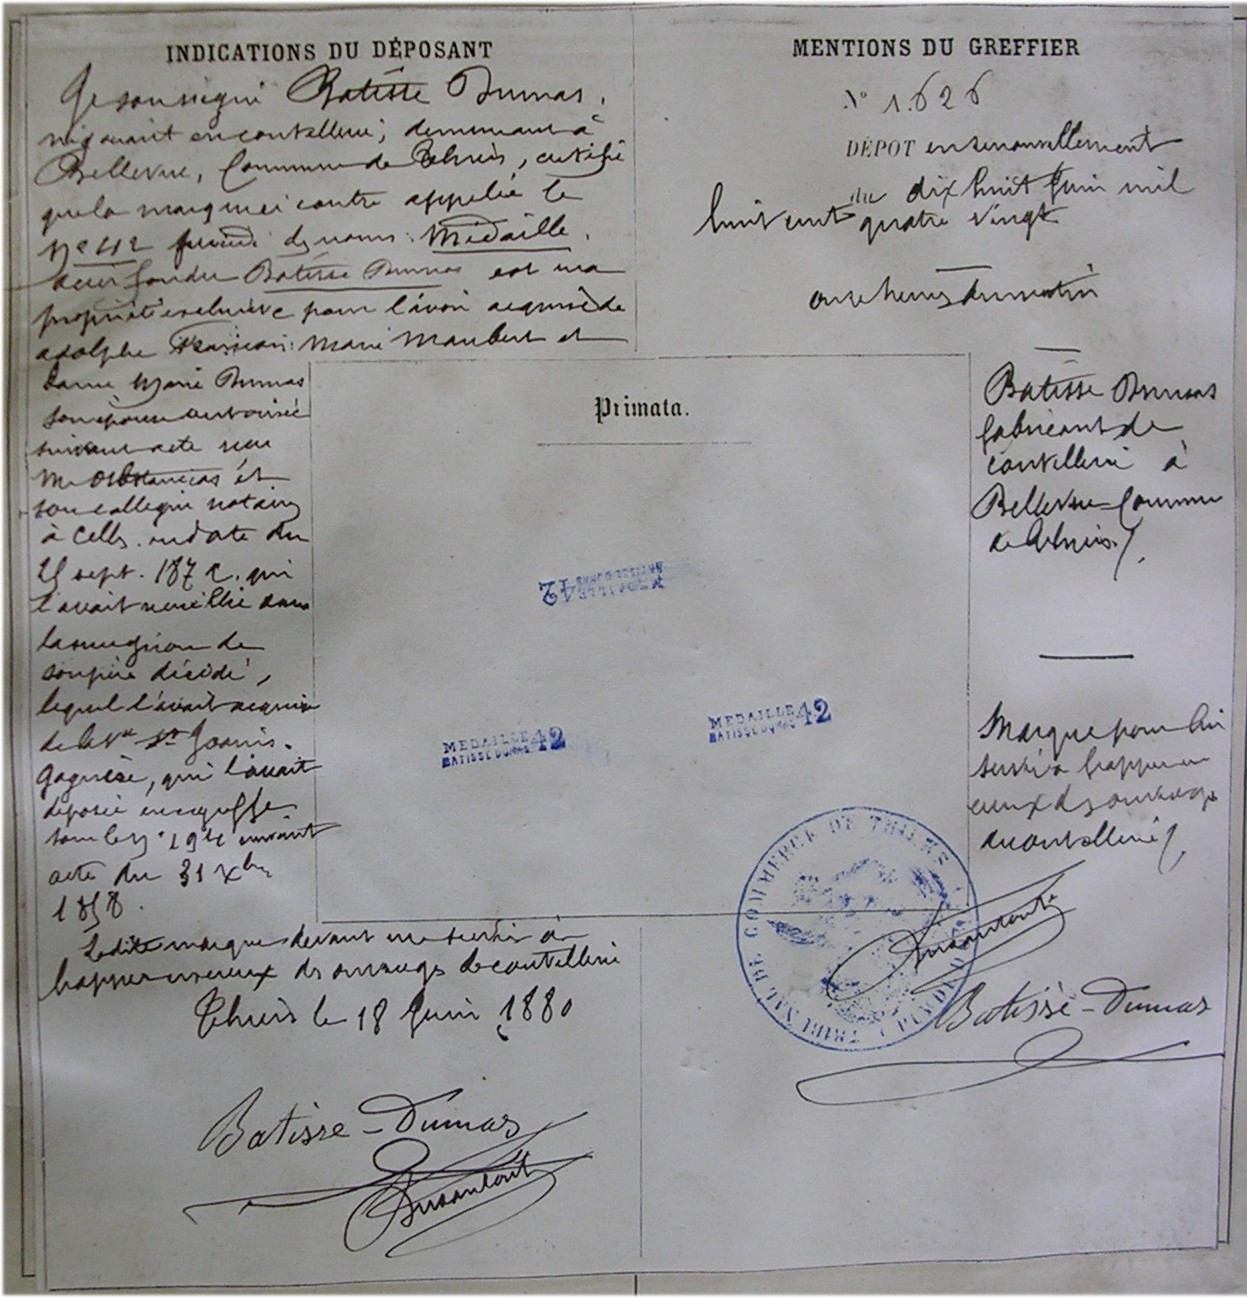 INDICATIONS DU DÉPOSANT
Je soussigné Batisse Dumas,
négociant en coutellerie, demeurant à
Bellevue, Commune de Thiers, certifie
que la marque ci contre appelée le
N° 42 suivi du nom: Médaille.
acier fondu Batisse Dumas est ma
propriété exclusive pour l'avoir acquise de
adolphe Marie Maubert et
dame Marie Dumas
son épouse autorisée
suivant acte reçu
Me et
son collègue notaires
à Celles en date du
sept. 187 qui
l'avait recueillie dans
la succession de
son père décédé,
lequel l'avait acquise
de la Ve
qui l'avait
déposée au greffe
sous le n° suivant
acte du 31 Xbre
1858.
Ladite marque devant me servir à
frapper sur ceux des ouvrages de coutellerie
Thiers le 18 Juin 1880
Batisse-Dumas
MENTIONS DU GREFFIER
N° 1.626
DÉPOT en renouvellement
du dix huit Juin mil
huit cent quatre vingt
onze heures du matin
Batisse Dumas
fabricant de
coutellerie à
Bellevue Commune
de Thiers.
Marque pour lui
servir à frapper sur
ceux des ouvrages
de coutellerie
Batisse-Dumas
Primata.
MEDAILLE 42
BATISSE DUMAS
MEDAILLE 42
BATISSE DUMAS
MEDAILLE 42
BATISSE DUMAS
TRIBUNAL DE COMMERCE DE THIERS
(PUY DE DOME)